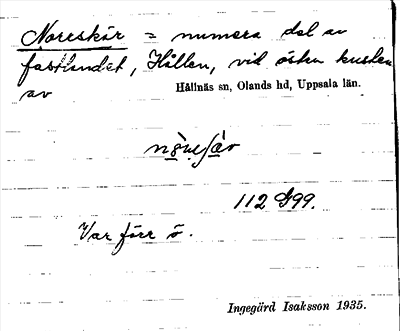 Norrskär = numera del av
fastlandet, Hållen, vid östra kusten
av Hållnäs sn, Olands hd, Uppsala län.
112 G99.
Var förr ö.
Ingegärd Isaksson 1935.